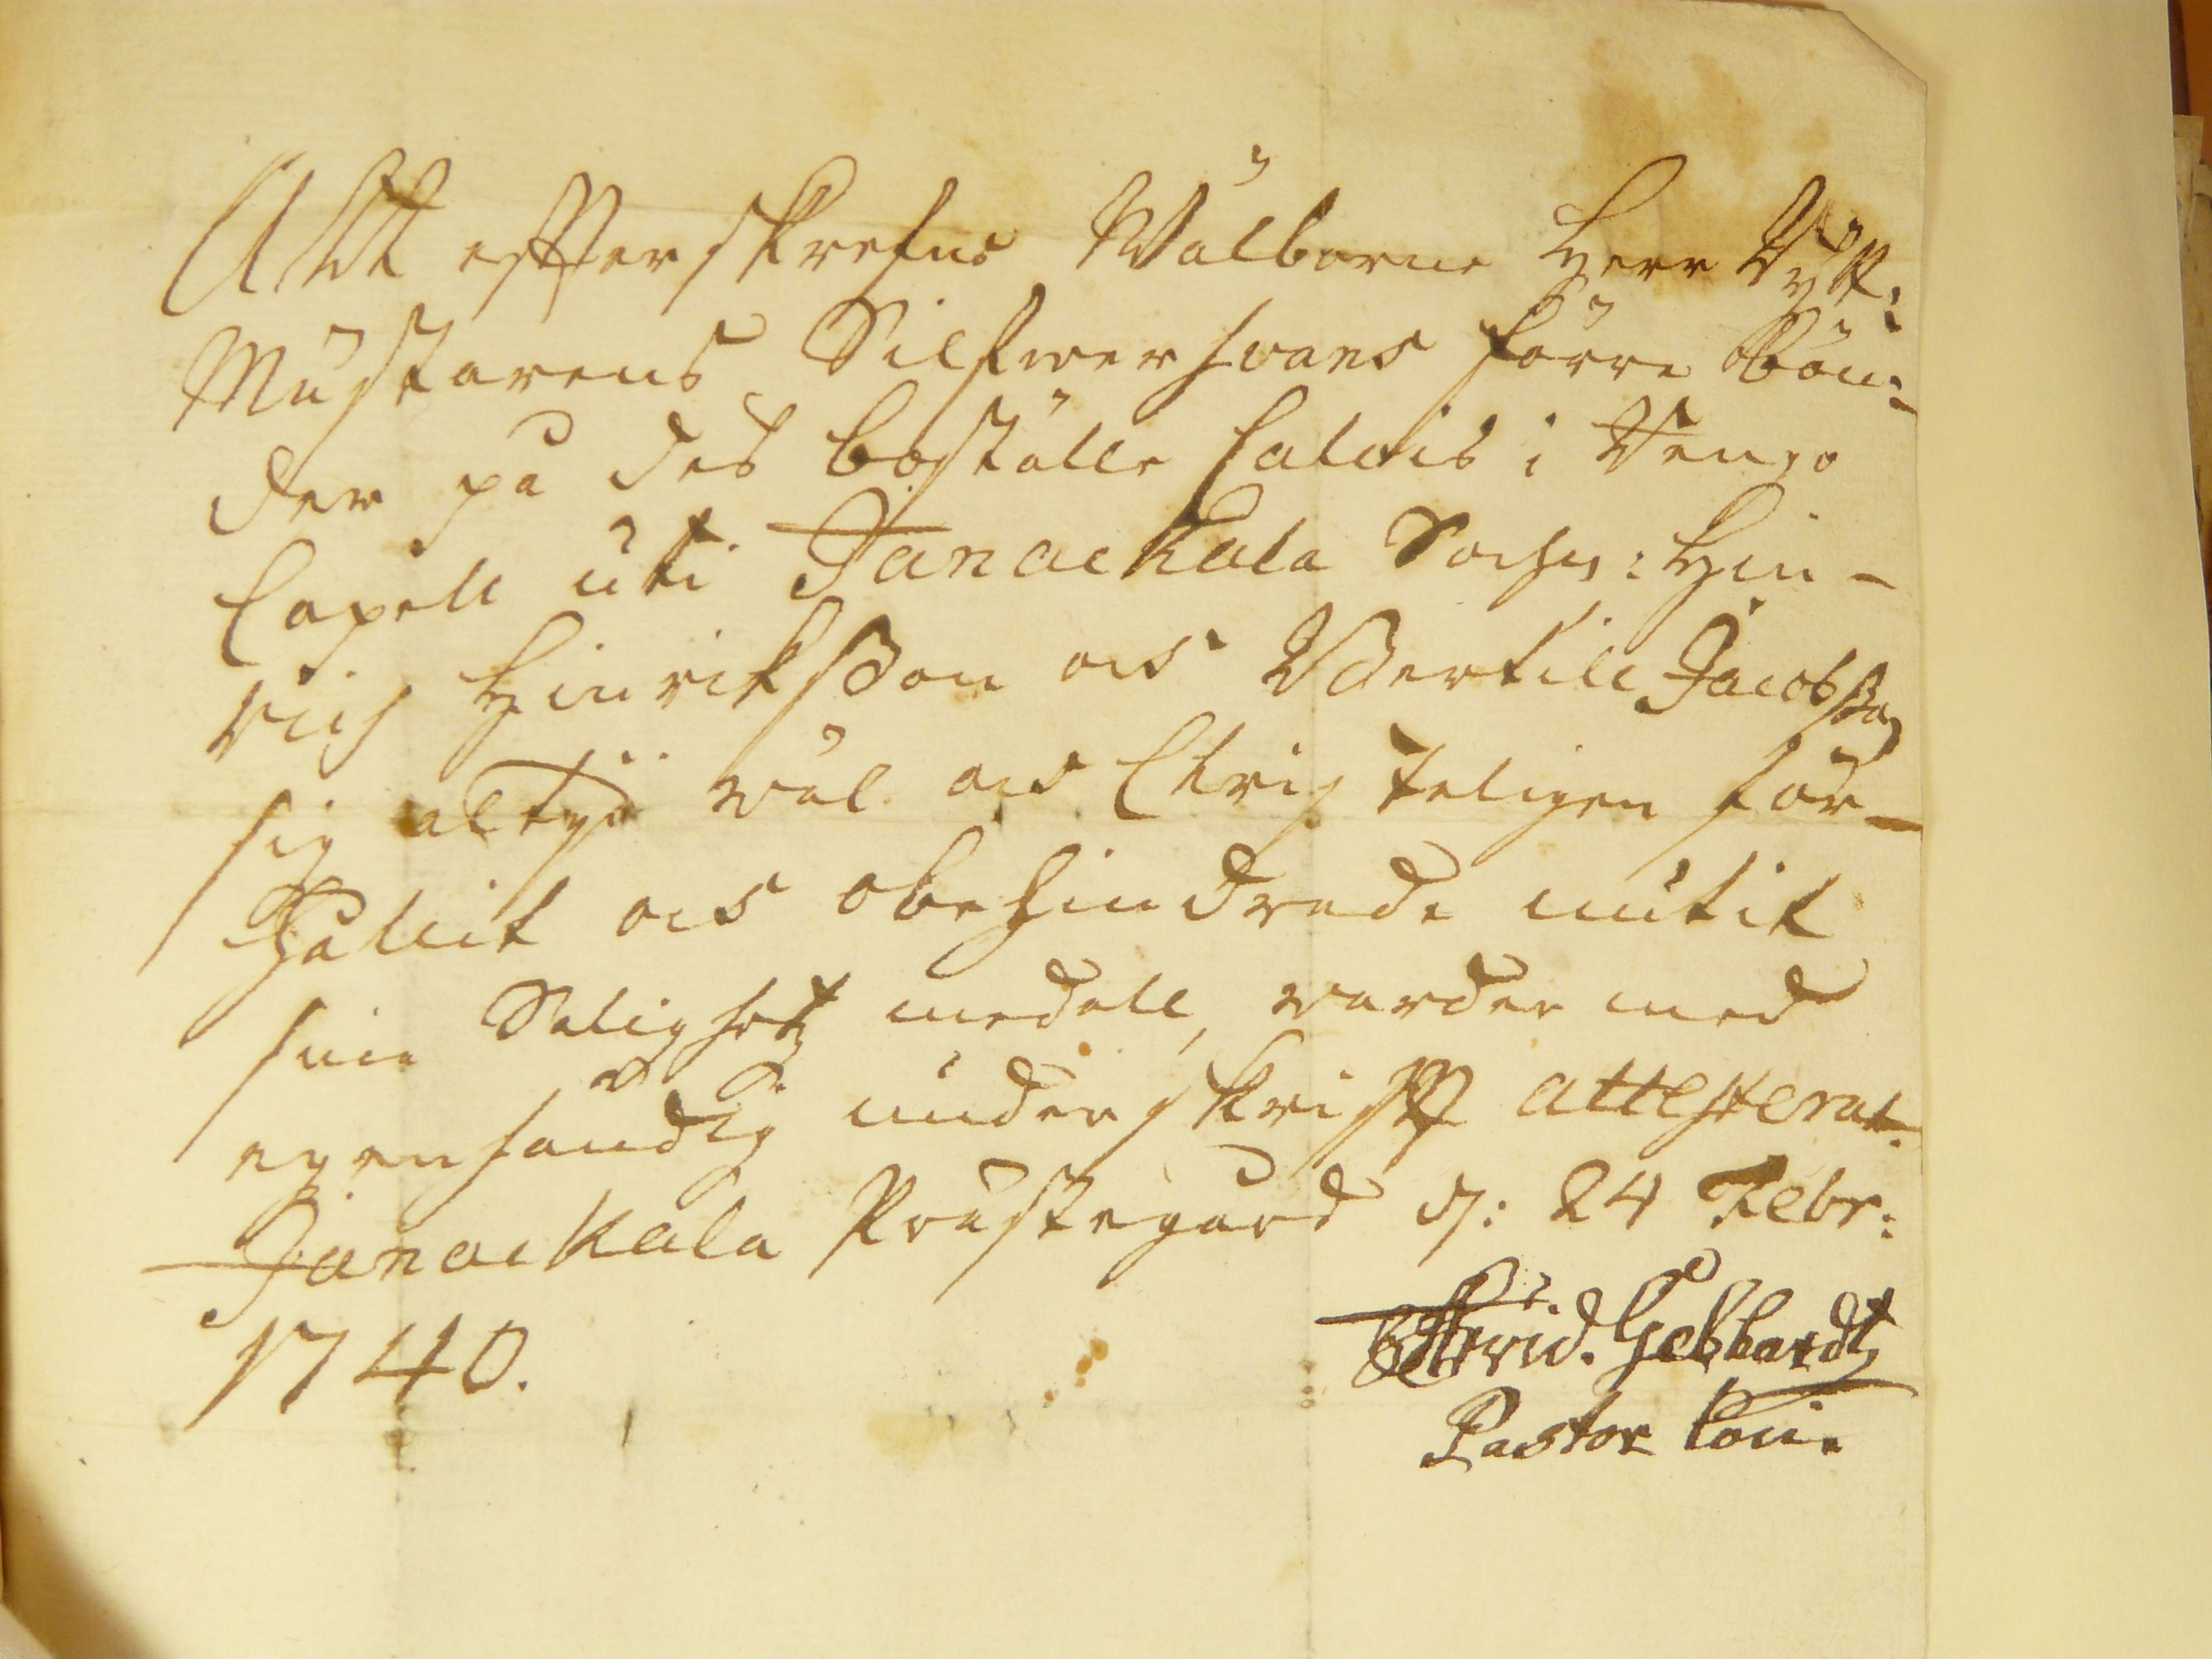 Att efterskrefne Wälborne Herr Rytt:
Mästarens Silfwersvans förre bön:
der på des boställe Calois i Rengo
Capell uti Janackala Sochn: Hin-
rich Hinrikßon och Bertill Jacobßon
sig altijd wäl och Christeligen för-
hållit och obehindrade nutit
sine Salighetz medell, warder med
egenhändig underskrifft attesterat.
Janackala Prästegård d: 24 Febr:
1740.
Arvid. Gebhardt
Pastor